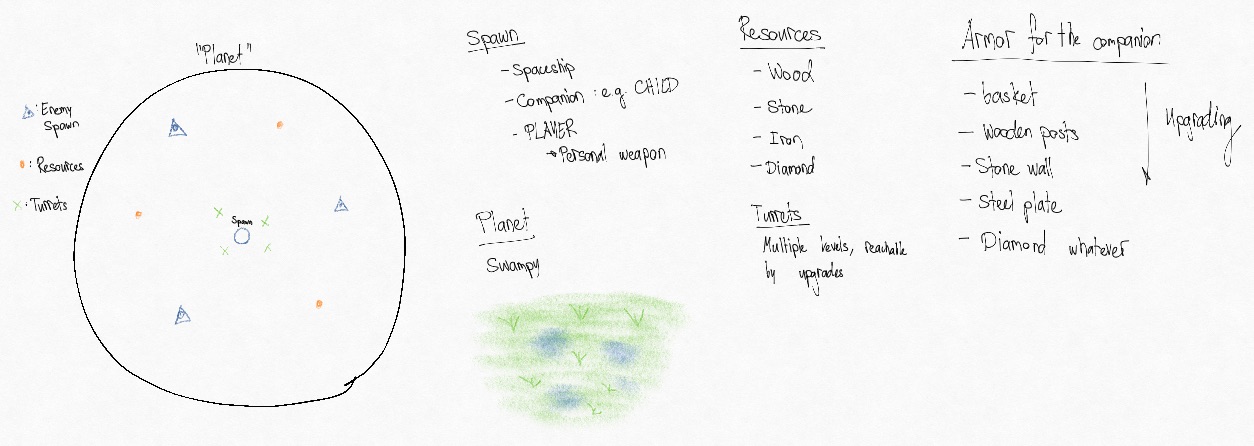 "Planet"
: Enemy
Spawn
: Resources
: Turrets
Spawn
Spawn
- Spaceship
- Companion : e.g. CHILD
- PLAYER
→ Personal weapon
Planet
Swampy
Resources
- Wood
- Stone
- Iron
- Diamond
Turrets
Multiple levels, reachable
by upgrades
Armor for the companion
- basket
- Wooden posts
- Stone wall
- Steel plate
- Diamond whatever
Upgrading